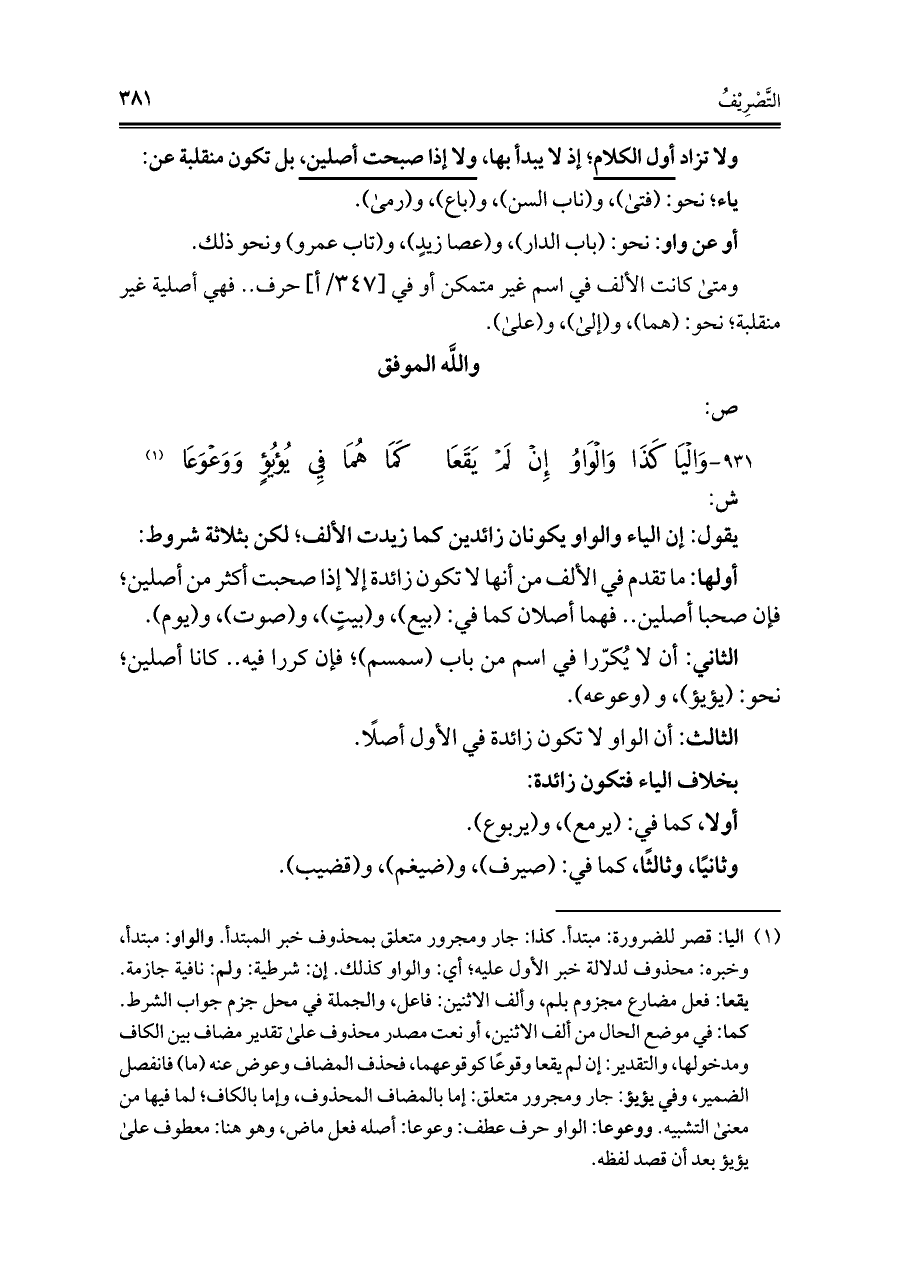 التَّصْرِيْفُ ٣٨١
ولا تزاد أول الكلام؛ إذ لا يبدأ بها، ولا إذا صبحت أصلين، بل تكون منقلبة عن:
ياء؛ نحو: (فتىٰ)، و(ناب السن)، و(باع)، و(رمىٰ).
أو عن واو: نحو: (باب الدار)، و(عصا زيدٍ)، و(تاب عمرو) ونحو ذلك.
ومتىٰ كانت الألف في اسم غير متمكن أو في [٣٤٧/ أ] حرف.. فهي أصلية غير
منقلبة؛ نحو: (هما)، و(إلىٰ)، و(علىٰ).
واللَّه الموفق
ص:
٩٣١-وَالْيَا كَذَا وَالْوَاوُ إِنْ لَمْ يَقَعَا كَمَا هُمَا فِي يُؤْيُؤٍ وَوَعْوَعَا (١)
ش:
يقول: إن الياء والواو يكونان زائدين كما زيدت الألف؛ لكن بثلاثة شروط:
أولها: ما تقدم في الألف من أنها لا تكون زائدة إلا إذا صحبت أكثر من أصلين؛
فإن صحبا أصلين.. فهما أصلان كما في: (بيع)، و(بيتٍ)، و(صوت)، و(يوم).
الثاني: أن لا يُكرّرا في اسم من باب (سمسم)؛ فإن كررا فيه.. كانا أصلين؛
نحو: (يؤيؤ)، و (وعوعه).
الثالث: أن الواو لا تكون زائدة في الأول أصلًا.
بخلاف الياء فتكون زائدة:
أولا، كما في: (يرمع)، و(يربوع).
وثانيًا، وثالثًا، كما في: (صيرف)، و(ضيغم)، و(قضيب).
(١) اليا: قصر للضرورة: مبتدأ. كذا: جار ومجرور متعلق بمحذوف خبر المبتدأ. والواو: مبتدأ،
وخبره: محذوف لدلالة خبر الأول عليه؛ أي: والواو كذلك. إن: شرطية: ولم: نافية جازمة.
يقعا: فعل مضارع مجزوم بلم، وألف الاثنين: فاعل، والجملة في محل جزم جواب الشرط.
كما: في موضع الحال من ألف الاثنين، أو نعت مصدر محذوف علىٰ تقدير مضاف بين الكاف
ومدخولها، والتقدير: إن لم يقعا وقوعًا كوقوعهما، فحذف المضاف وعوض عنه (ما) فانفصل
الضمير، وفي يؤيؤ: جار ومجرور متعلق: إما بالمضاف المحذوف، وإما بالكاف؛ لما فيها من
معنىٰ التشبيه. ووعوعا: الواو حرف عطف: وعوعا: أصله فعل ماض، وهو هنا: معطوف علىٰ
يؤيؤ بعد أن قصد لفظه.